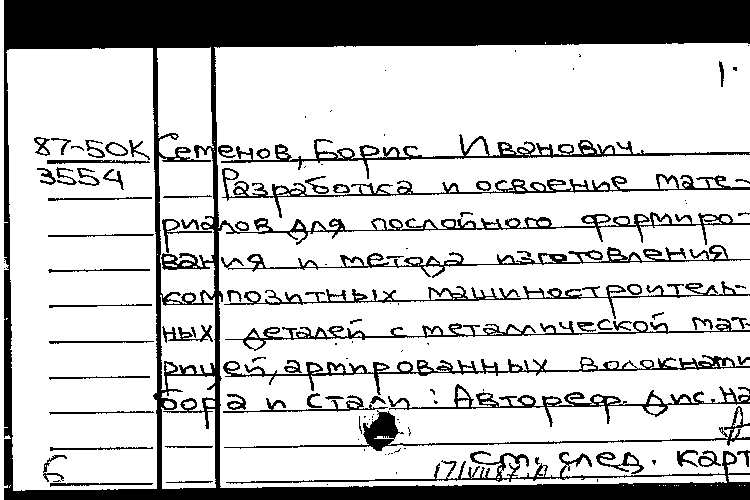 1.
87-50К Семенов, Борис Иванович.
3554 Разработка и освоение мате-
риалов для послойного формиро-
вания и метода изготовления
композитных машиностроитель-
ных деталей с металлической мат-
рицей, армированных волокнами
бора и стали : Автореф. дис. на
См. след. карт
Б